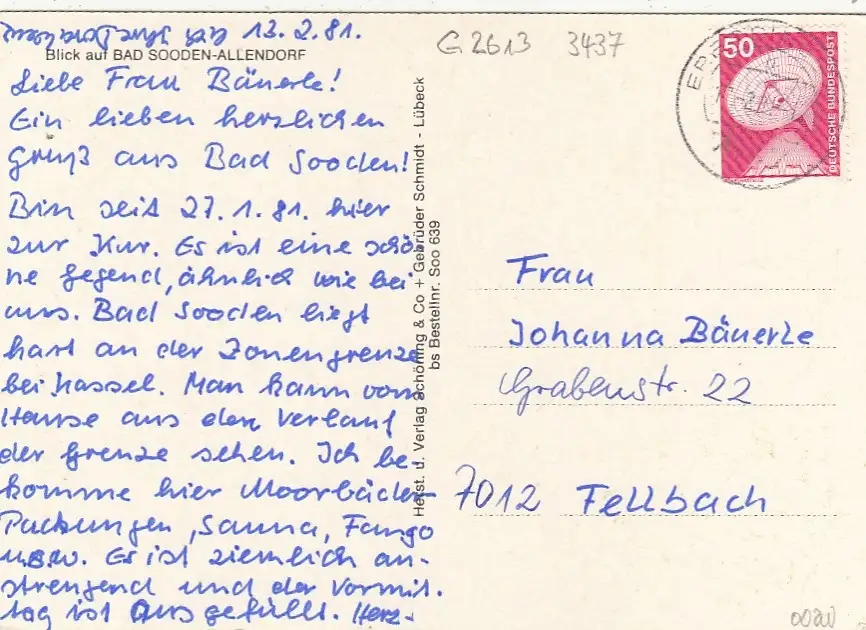 13.2.81.
Blick auf BAD SOODEN-ALLENDORF
Liebe Frau Bäuerle!
Ein lieben herzlichen
Gruß aus Bad Sooden!
Bin seit 27.1.81. hier
zur Kur. Es ist eine schö-
ne Gegend, ähnlich wie bei
uns. Bad Sooden liegt
hart an der Zonengrenze
bei Kassel. Man kann vom
Hause aus den Verlauf
der Grenze sehen. Ich be-
komme hier Moorbäder
Packungen, Sauna, Fango
usw. Es ist ziemlich an-
strengend und der Vormit-
tag ist ausgefüllt. Herz-
Herst. u. Verlag Schöning & Co + Gebrüder Schmidt - Lübeck
bs Bestellnr. Soo 639
G2613 3437
50
DEUTSCHE BUNDESPOST
Frau
Johanna Bäuerle
Grabenstr. 22
7012 Fellbach